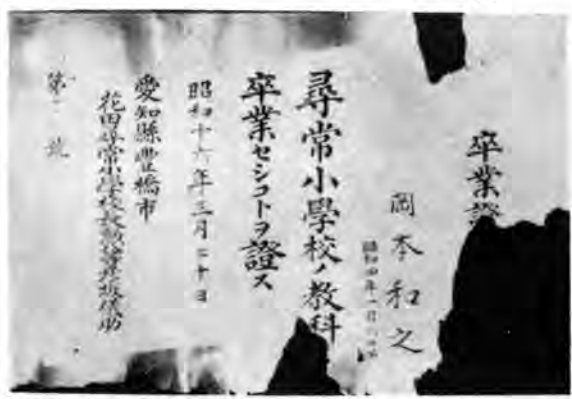 卒業證
岡本和之
昭和四年一月
尋常小學校ノ教科
卒業セシコトヲ證ス
昭和十六年三月二十日
愛知縣豊橋市
花田尋常小學校長
第一號